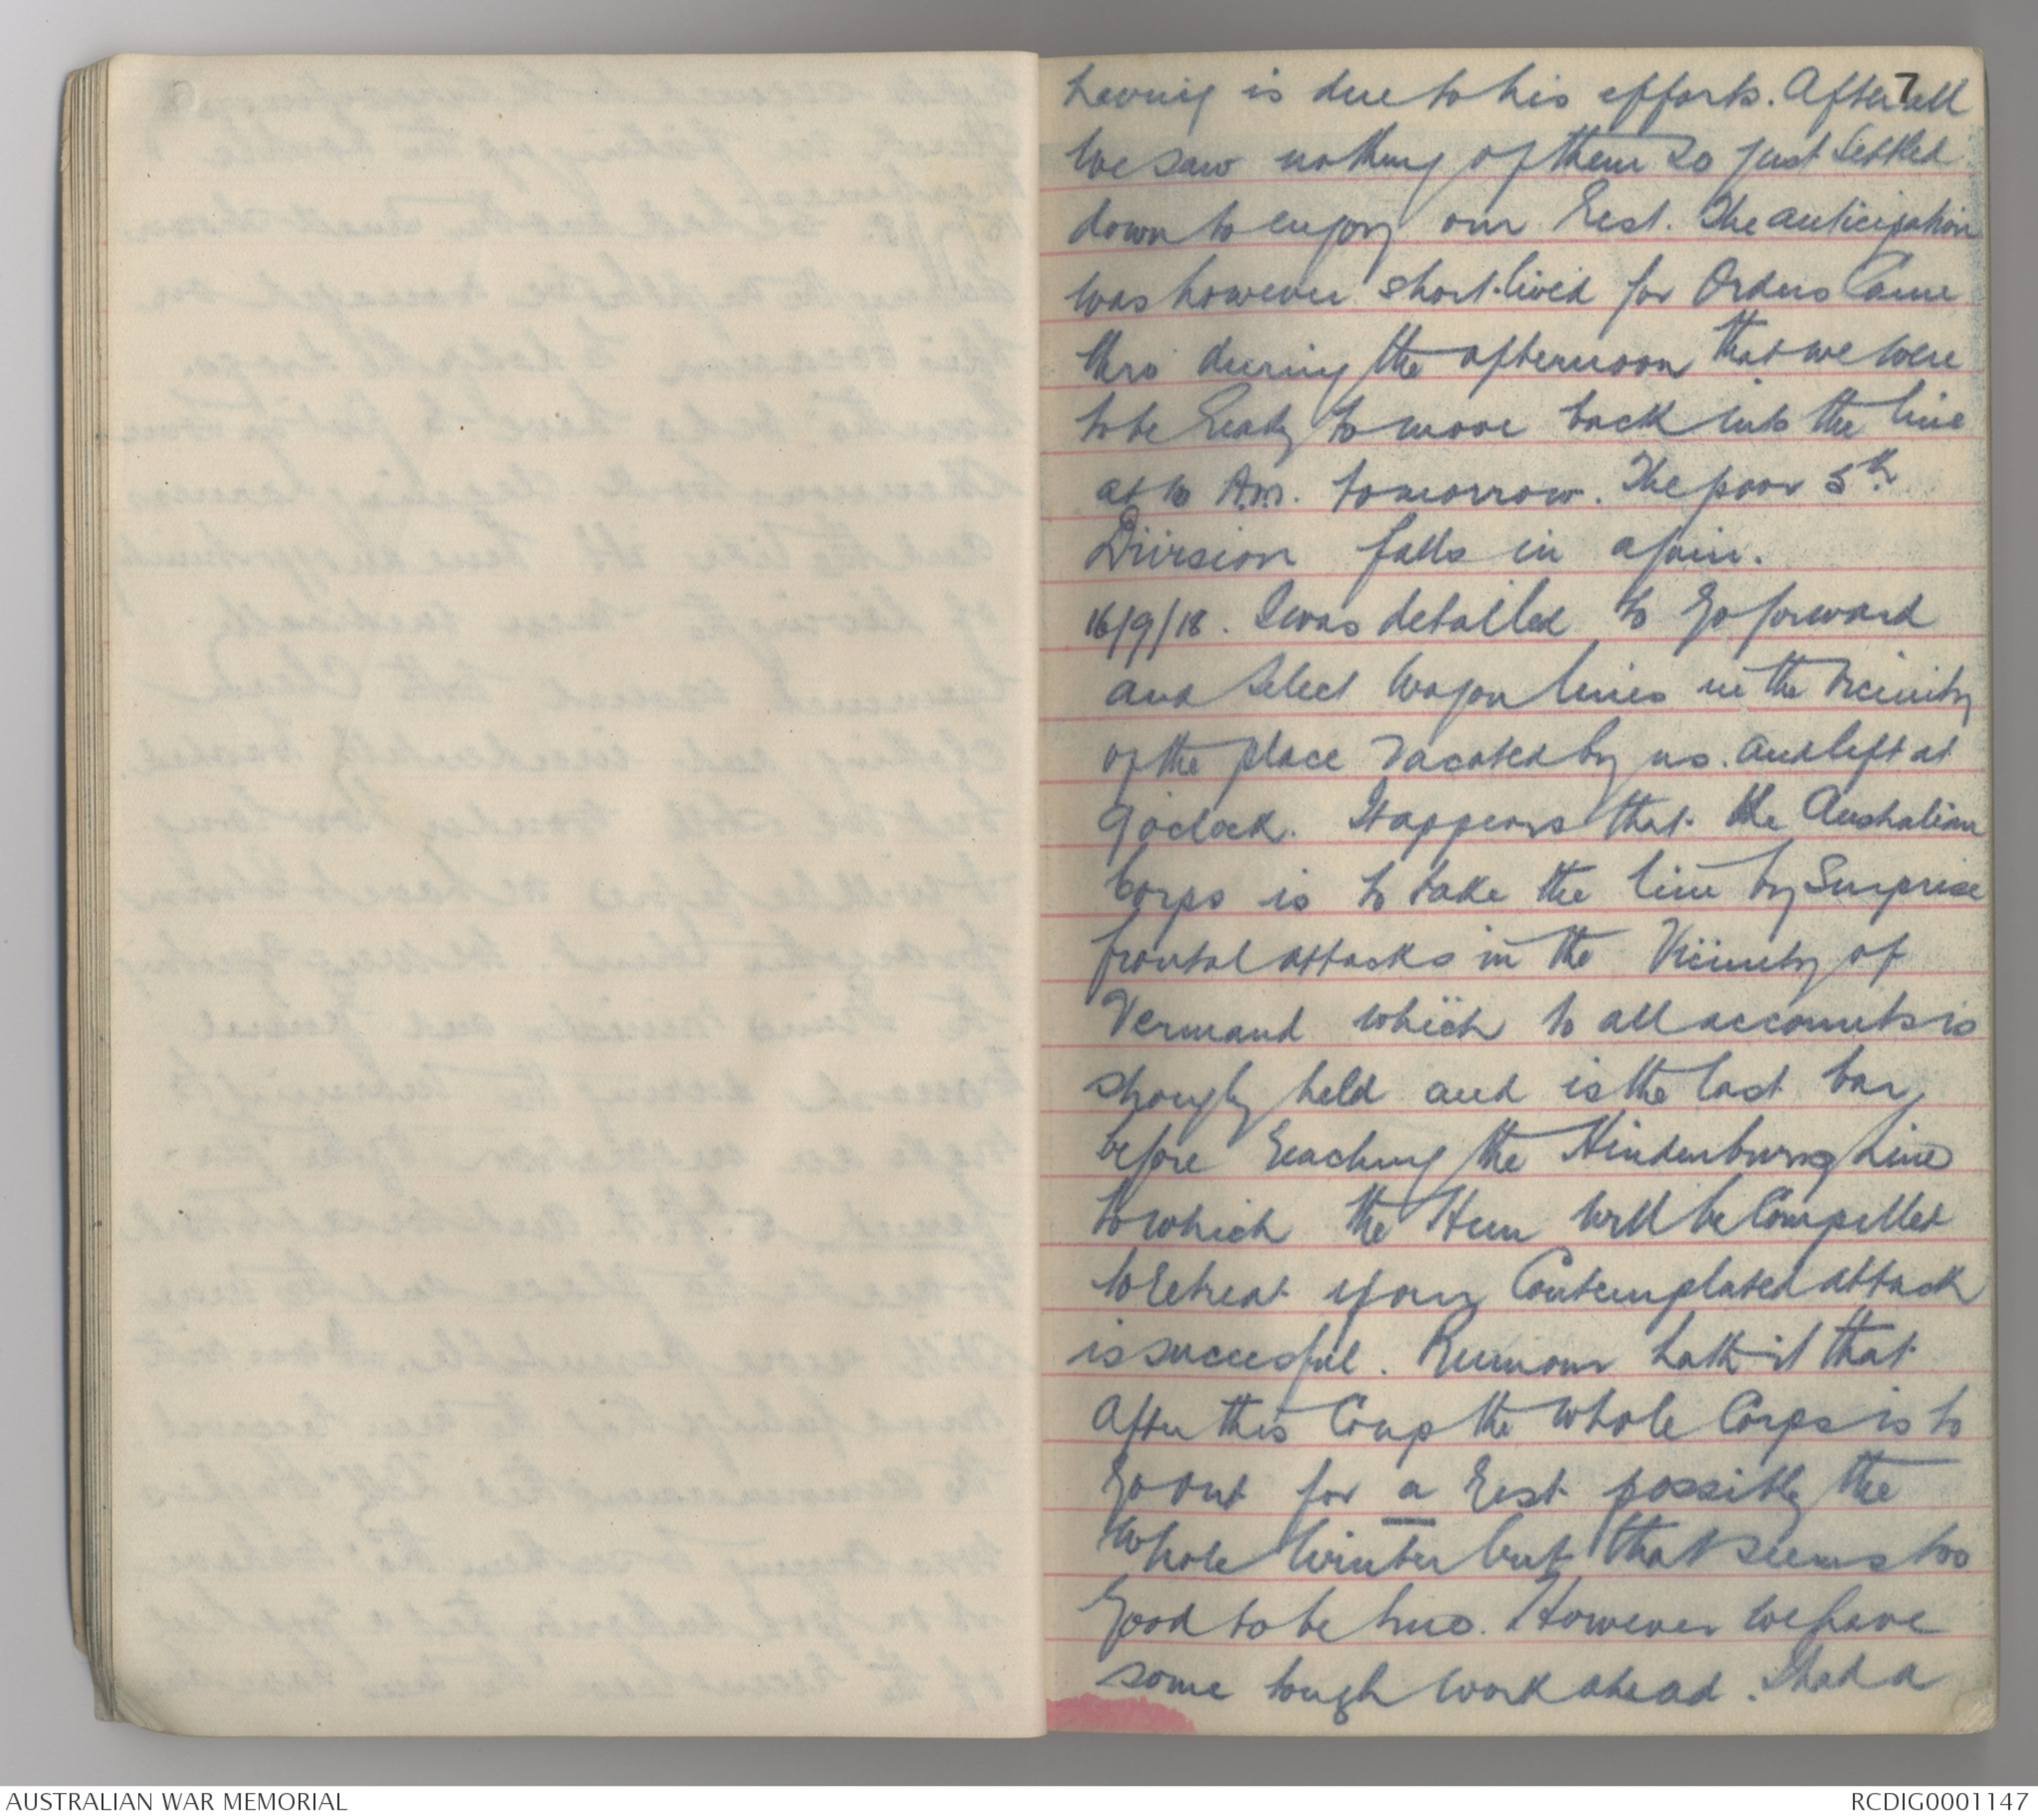 7
having is due to his efforts. After all
we saw nothing of them so just settled
down to enjoy our rest. The anticipation
was however short-lived for Orders Came
thro during the afternoon that we were
to be ready to move back into the line
at 10 A.M. tomorrow. The poor 5th
Division falls in again.
16/9/18. I was detailed to go forward
and select wagon lines in the vicinity
of the place vacated by us. and left at
9 oclock. It appears that the Australian
Corps is to take the line by Surprise
frontal attacks in the vicinity of
Vermand which to all accounts is
strongly held and is the last bar
before reaching the Hindenburg Line
to which the Hun will be Compelled
to retreat if our Contemplated attack
is successful. Rumour hath it that
After this Coup the whole Corps is to
go out for a rest possibly the
whole winter but that seems too
good to be true. However we have
some tough work ahead. I had a
AUSTRALIAN WAR MEMORIAL
RCDIG0001147